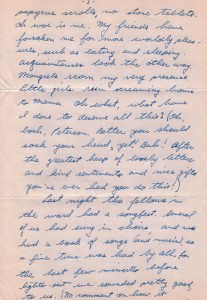 - 3 -
papyrus scrolls, no stone tablets.
Oh woe is me! My friends have
forsaken me for more worldly pleas-
ures, such as eating and sleeping.
Acquaintances look the other way.
Mongrels scorn my very presence
little girls run screaming home
to Mama. Oh what, what have
I done to deserve all this? (Oh,
bosh, Peterson. Better you should
soak your head, yet! Bah! After
the greatest heap of lovely letters
and kind sentiments and nice gifts
you've ever had you do this!)
Last night the fellows in
the ward had a songfest. Several
of us had sung in choirs and we
had a book of songs (and music) so
a fine time was had by all. For
the last few minutes before
lights out we sounded pretty good
to us. (No comment on how it